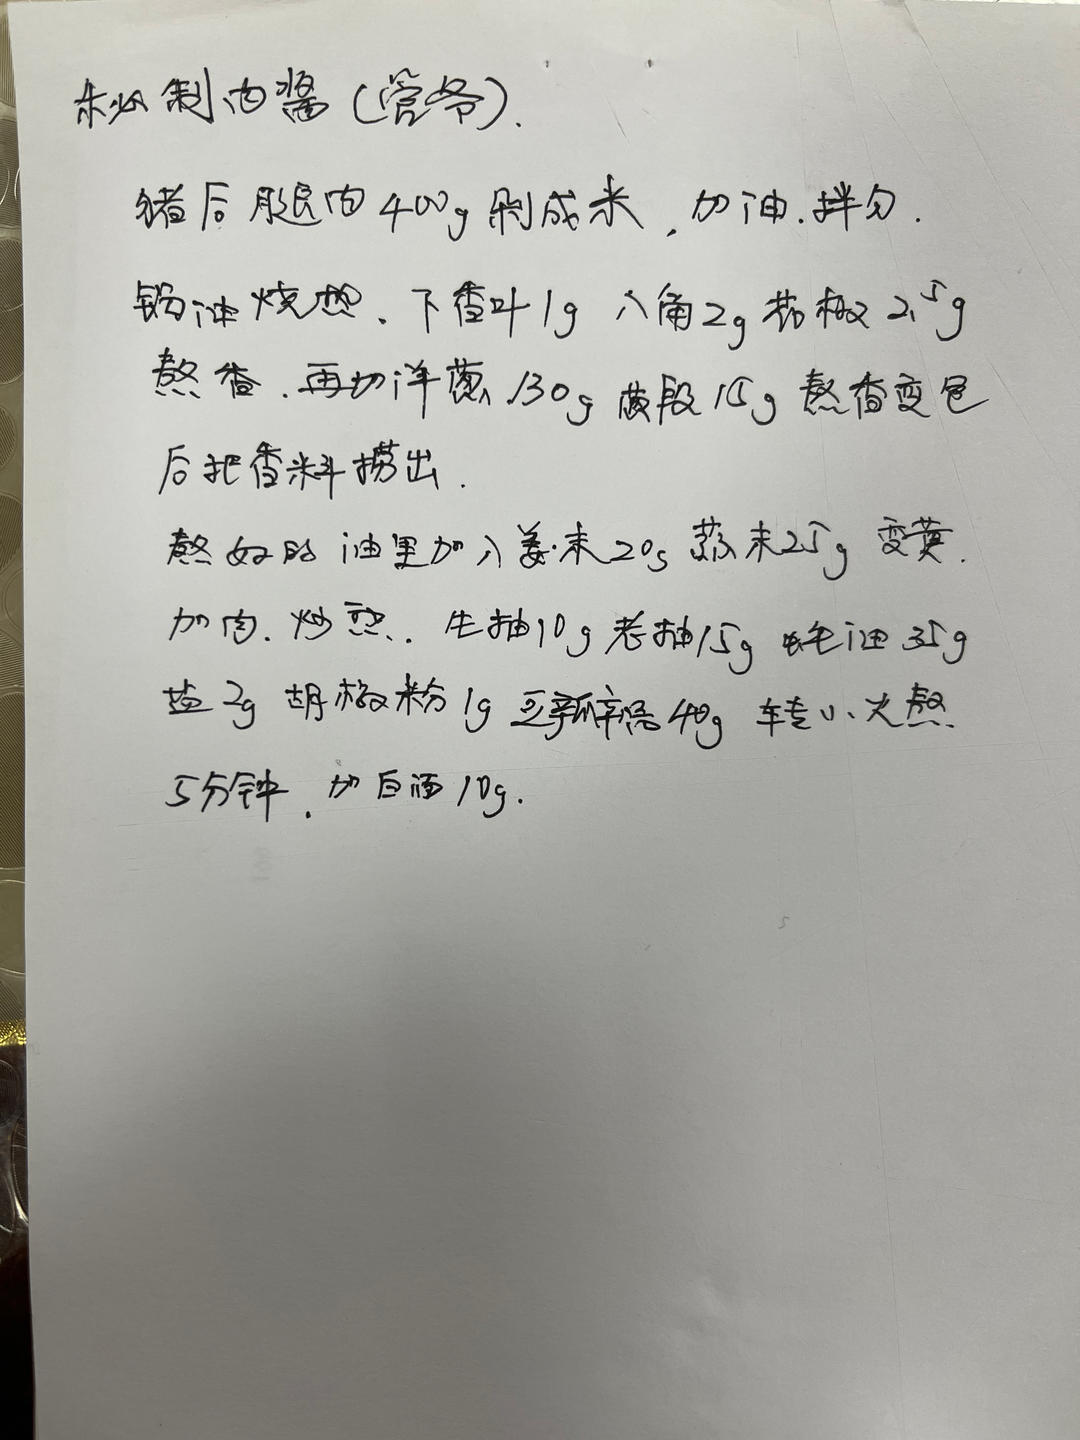 秘制肉酱(管爷).
猪后腿肉400g剁成米,加油.拌匀.
锅油烧热.下香叶1g 八角2g 花椒2.5g
熬香.再切洋葱.130g 葱段15g 熬香变色
后把香料捞出.
熬好的油里加入姜末20g 蒜末25g 变黄.
加肉.炒熟.生抽10g老抽15g 蚝油35g
盐2g 胡椒粉1g 豆瓣酱40g 转小火熬
5分钟.加白酒10g.